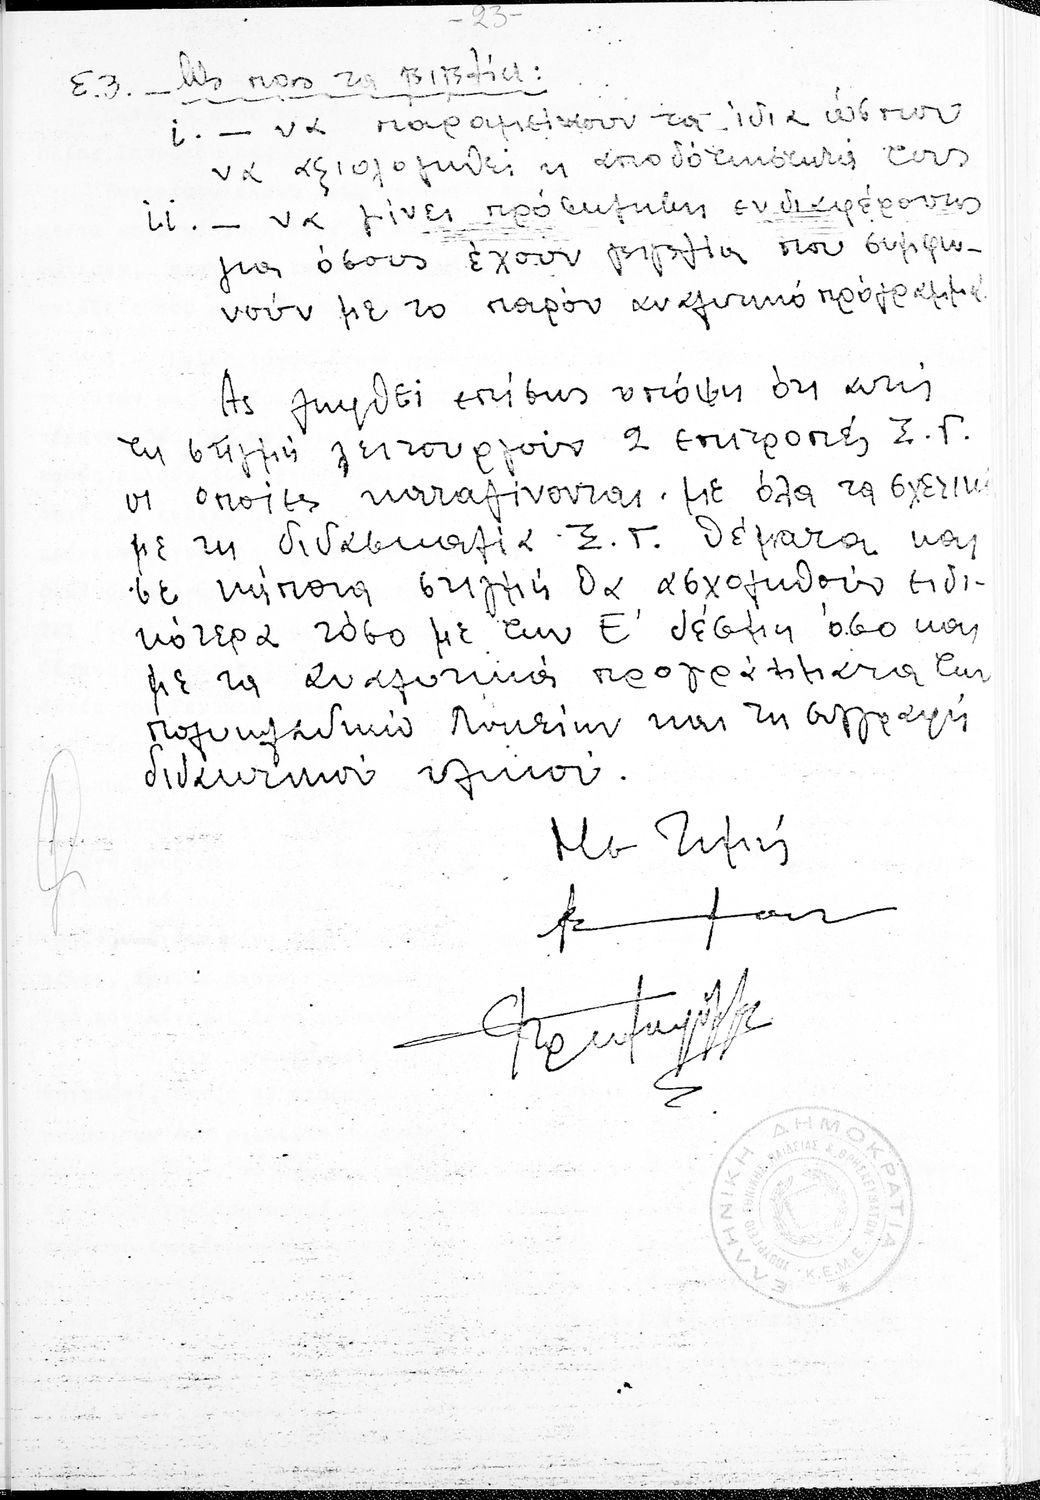 -23-
Ε.3. – Ως προς τα βιβλία:
i. – να παραμείνουν τα ίδια ώσπου
να αξιολογηθεί η αποδοτικότητά τους
ii. – να γίνει πρόσκληση ενδιαφέροντος
για όσους έχουν βιβλία που συμφω-
νούν με το παρόν αναλυτικό πρόγραμμα.
Ας ληφθεί επίσης υπόψη ότι αυτή
τη στιγμή λειτουργούν 2 επιτροπές Σ.Γ.
οι οποίες καταγίνονται με όλα τα σχετικά
με τη διδασκαλία Σ.Γ. θέματα και
σε κάποια στιγμή θα ασχοληθούν ειδι-
κότερα τόσο με την Ε' δέσμη όσο και
με τα αναλυτικά προγράμματα των
πολυκλαδικών Λυκείων και τη συγγραφή
διδακτικού υλικού.
Με Τιμή
ΕΛΛΗΝΙΚΗ ΔΗΜΟΚΡΑΤΙΑ
ΥΠΟΥΡΓΕΙΟ ΕΘΝΙΚΗΣ ΠΑΙΔΕΙΑΣ & ΘΡΗΣΚΕΥΜΑΤΩΝ
Κ.Ε.Μ.Ε.